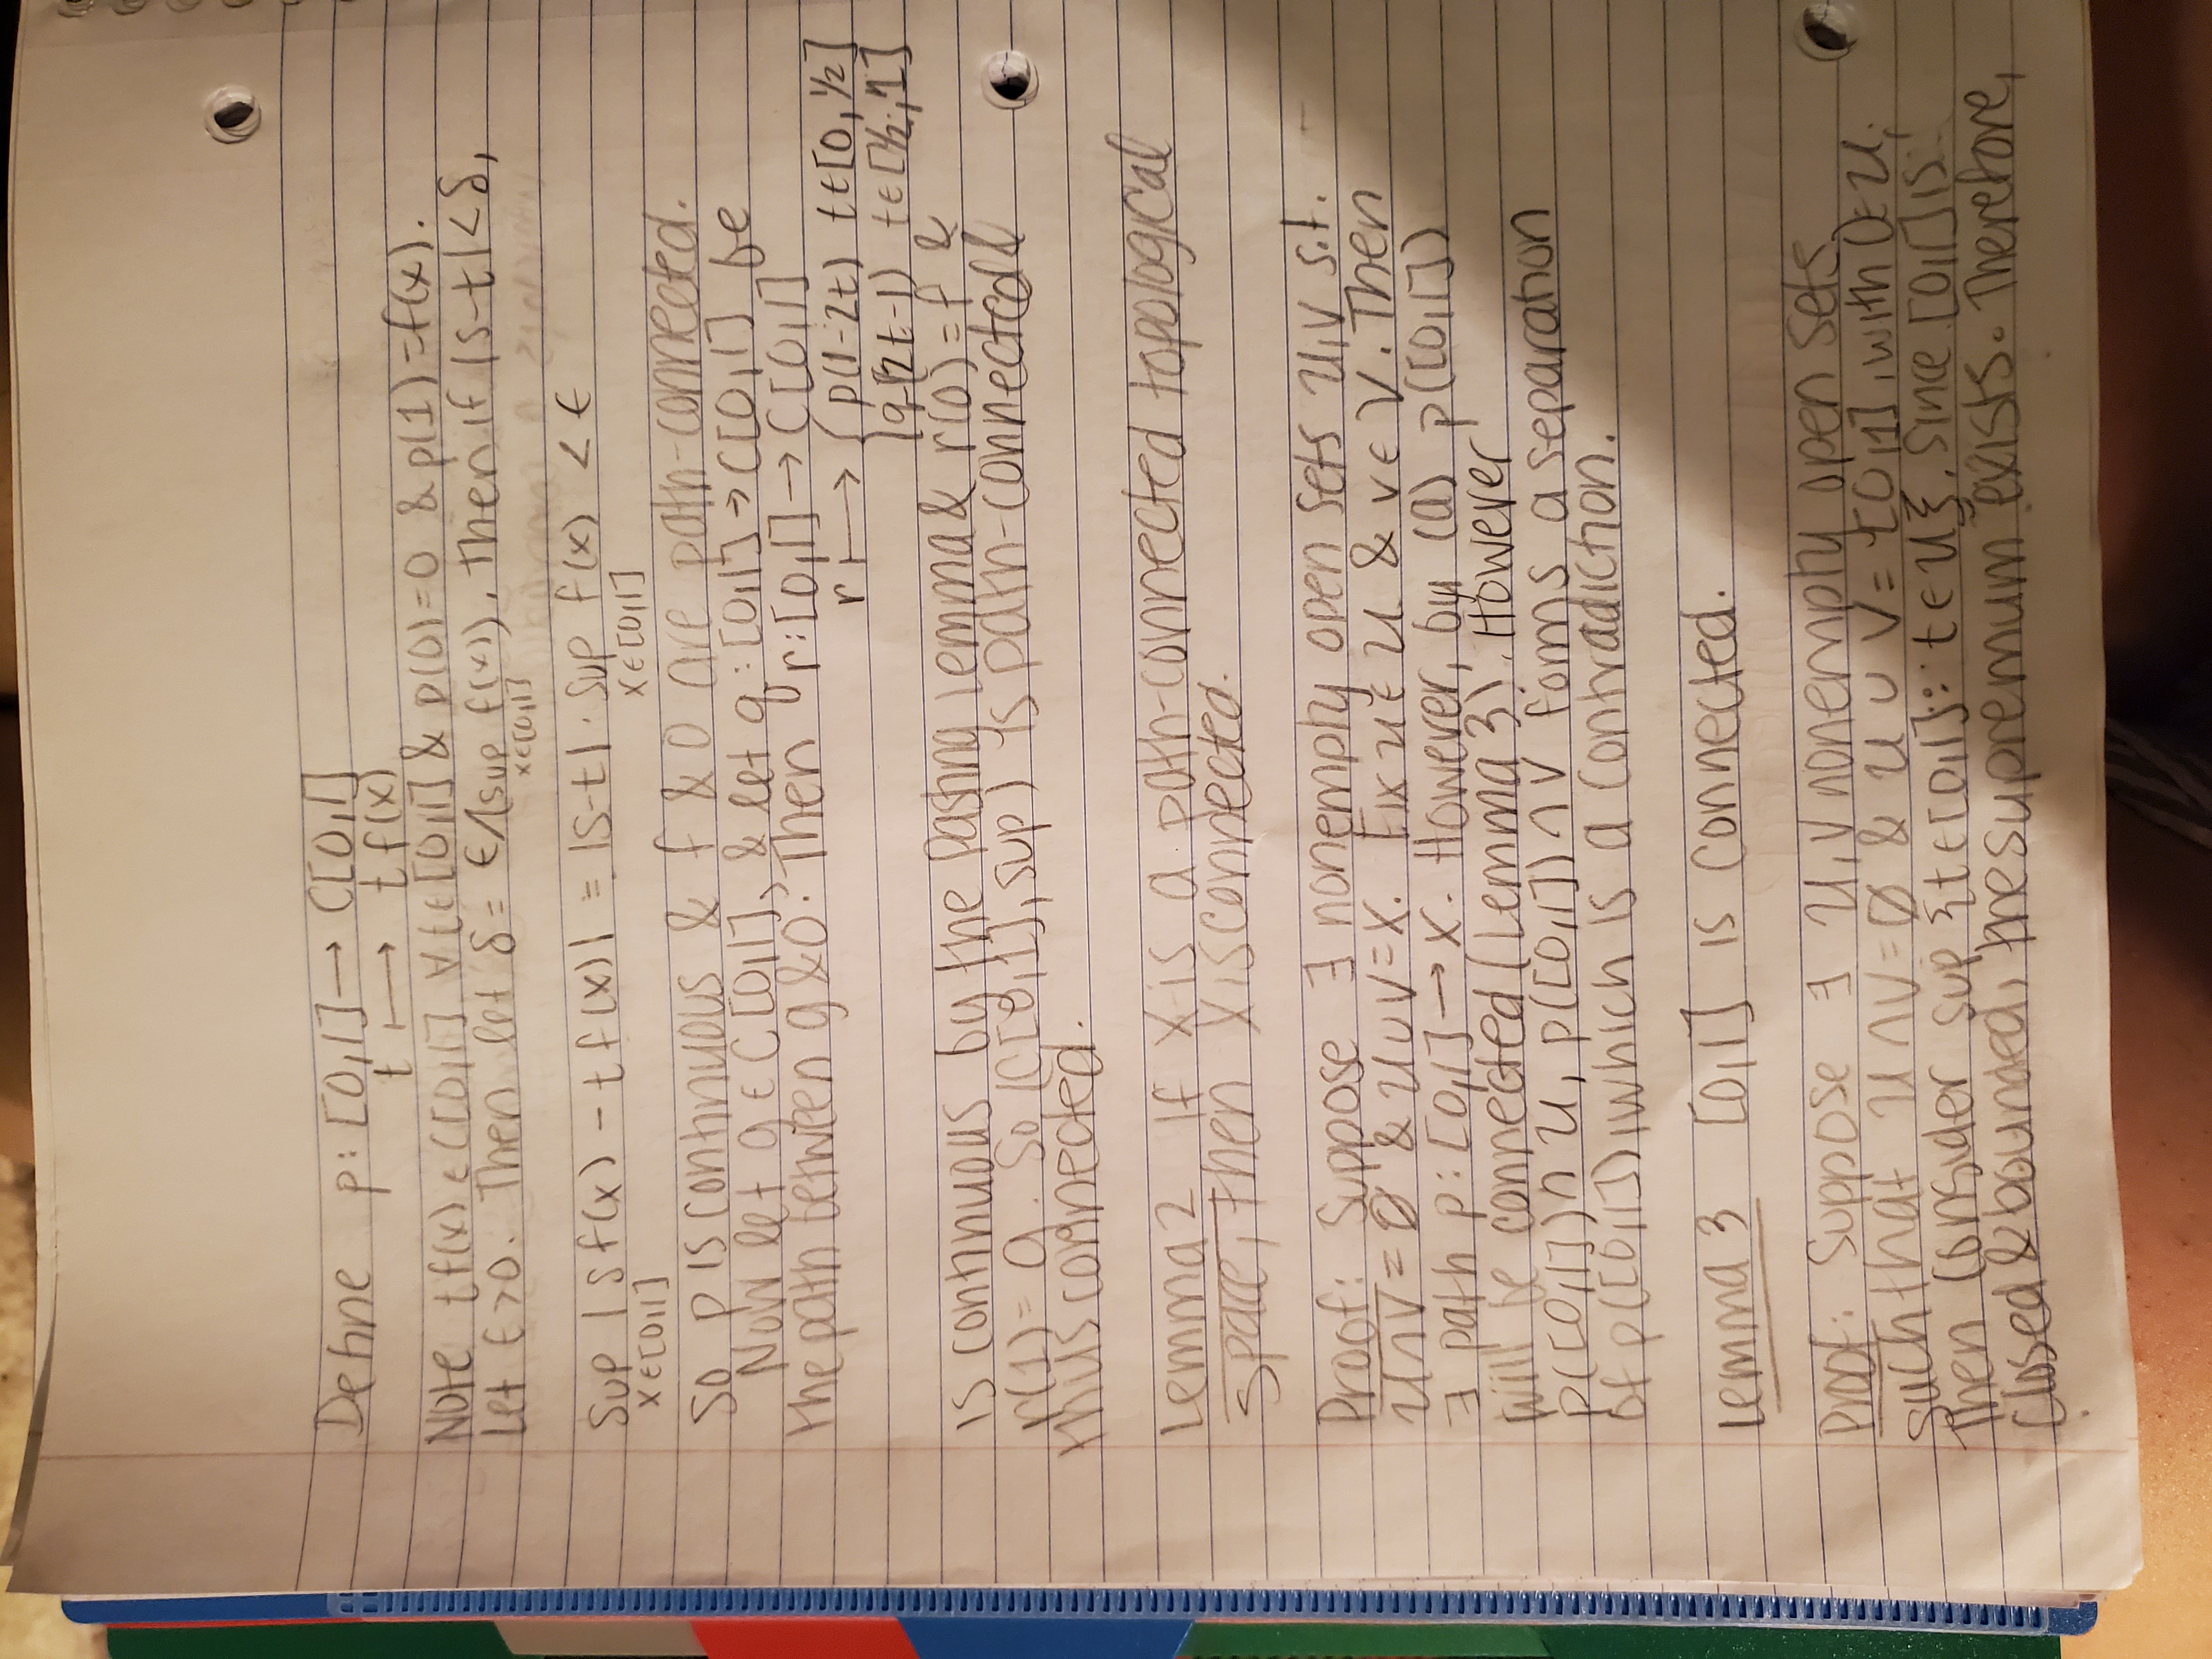 Define p: [0,1] → C[0,1]
t ⟼ t f(x)
Note t f(x) ∈ C[0,1] ∀ t ∈ [0,1] & p(0) = 0 & p(1) = f(x).
Let ϵ > 0. Then let δ = ϵ/(sup f(x)), then if |s-t| < δ,
x∈[0,1]
sup | s f(x) - t f(x)| = |s-t| · sup f(x) < ϵ
x∈[0,1] x∈[0,1]
So p is continuous & f & 0 are path-connected.
Now let g ∈ C[0,1] & let q: [0,1] → C[0,1] be
the path between g & 0. Then r: [0,1] → C[0,1]
r ⟼ { p(1-2t) t∈[0,1/2]
{ q(2t-1) t∈[1/2,1]
is continuous by the pasting lemma & r(0) = f &
r(1) = g. So (C[0,1], sup) is path-connected &
thus connected.
Lemma 2 If X is a path-connected topological
space, then X is connected.
Proof: Suppose ∃ nonempty open sets U,V s.t.
U∩V = ∅ & U∪V = X. Fix u∈U & v∈V. Then
∃ path p: [0,1] → X. However, by (a) p([0,1])
will be connected (Lemma 3). However
p([0,1]) ∩ U, p([0,1]) ∩ V forms a separation
of p([0,1]) which is a contradiction.
Lemma 3 [0,1] is connected.
Proof: Suppose ∃ U,V nonempty open sets
such that U∩V = ∅ & U∪V = [0,1], with 0∈U.
Then consider sup {t∈[0,1]: t∈U}. Since [0,1] is
closed & bounded, the supremum exists. Therefore,